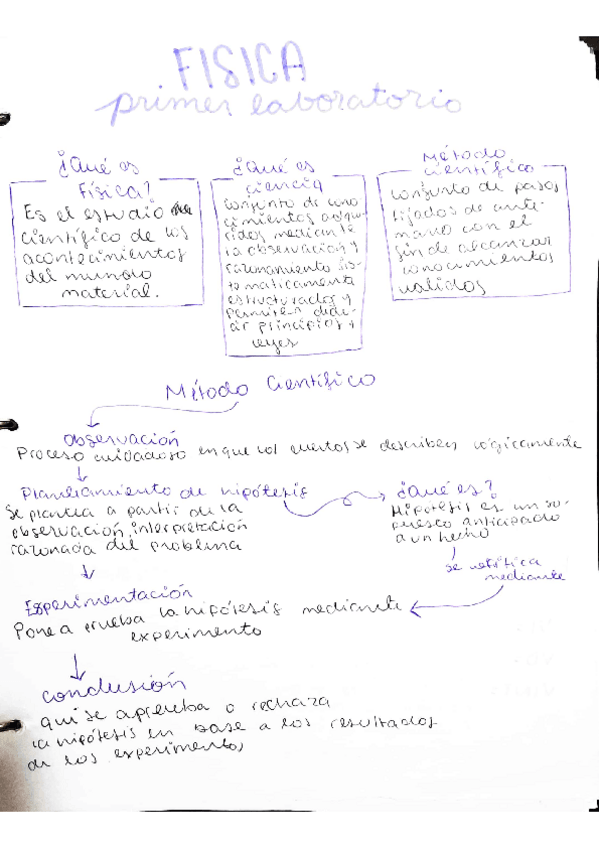 FISICA
primer laboratorio
¿Qué es
Física?
Es el estudio
científico de los
acontecimientos
del mundo
material.
¿Qué es
ciencia
conjunto de cono
cimientos adqui
ridos mediante
la observación y
razonamiento sis
tematicamente
estructurados y
permiten dedu-
cir principios y
leyes
Método
científico
conjunto de pasos
fijados de ante-
mano con el
fin de alcanzar
conocimientos
validos
Método Científico
observación
Proceso cuidadoso en que los se describen lógicamente
Planteamiento de hipótesis
Se plantea a partir de la
observación, interpretación
razonada del problema
¿Qué es?
Hipótesis es un su-
puesto anticipado
a un hecho
se verifica
mediante
Experimentación
Pone a prueba la hipótesis mediante
experimento
conclusión
qui se aprueba o rechaza
la hipótesis en base a los resultados
de los experimentos